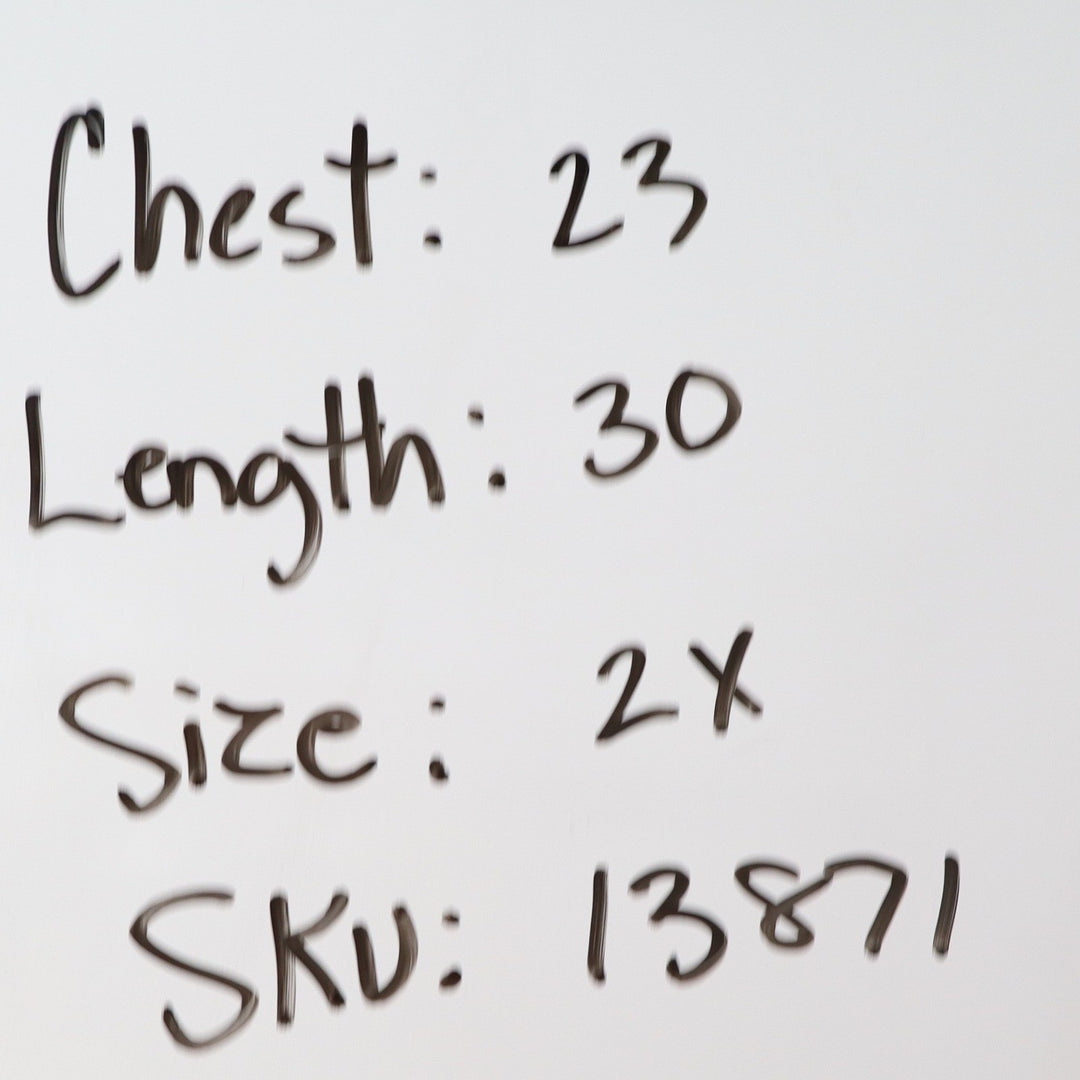 Chest: 23
Length: 30
Size: 2X
SKU: 13871